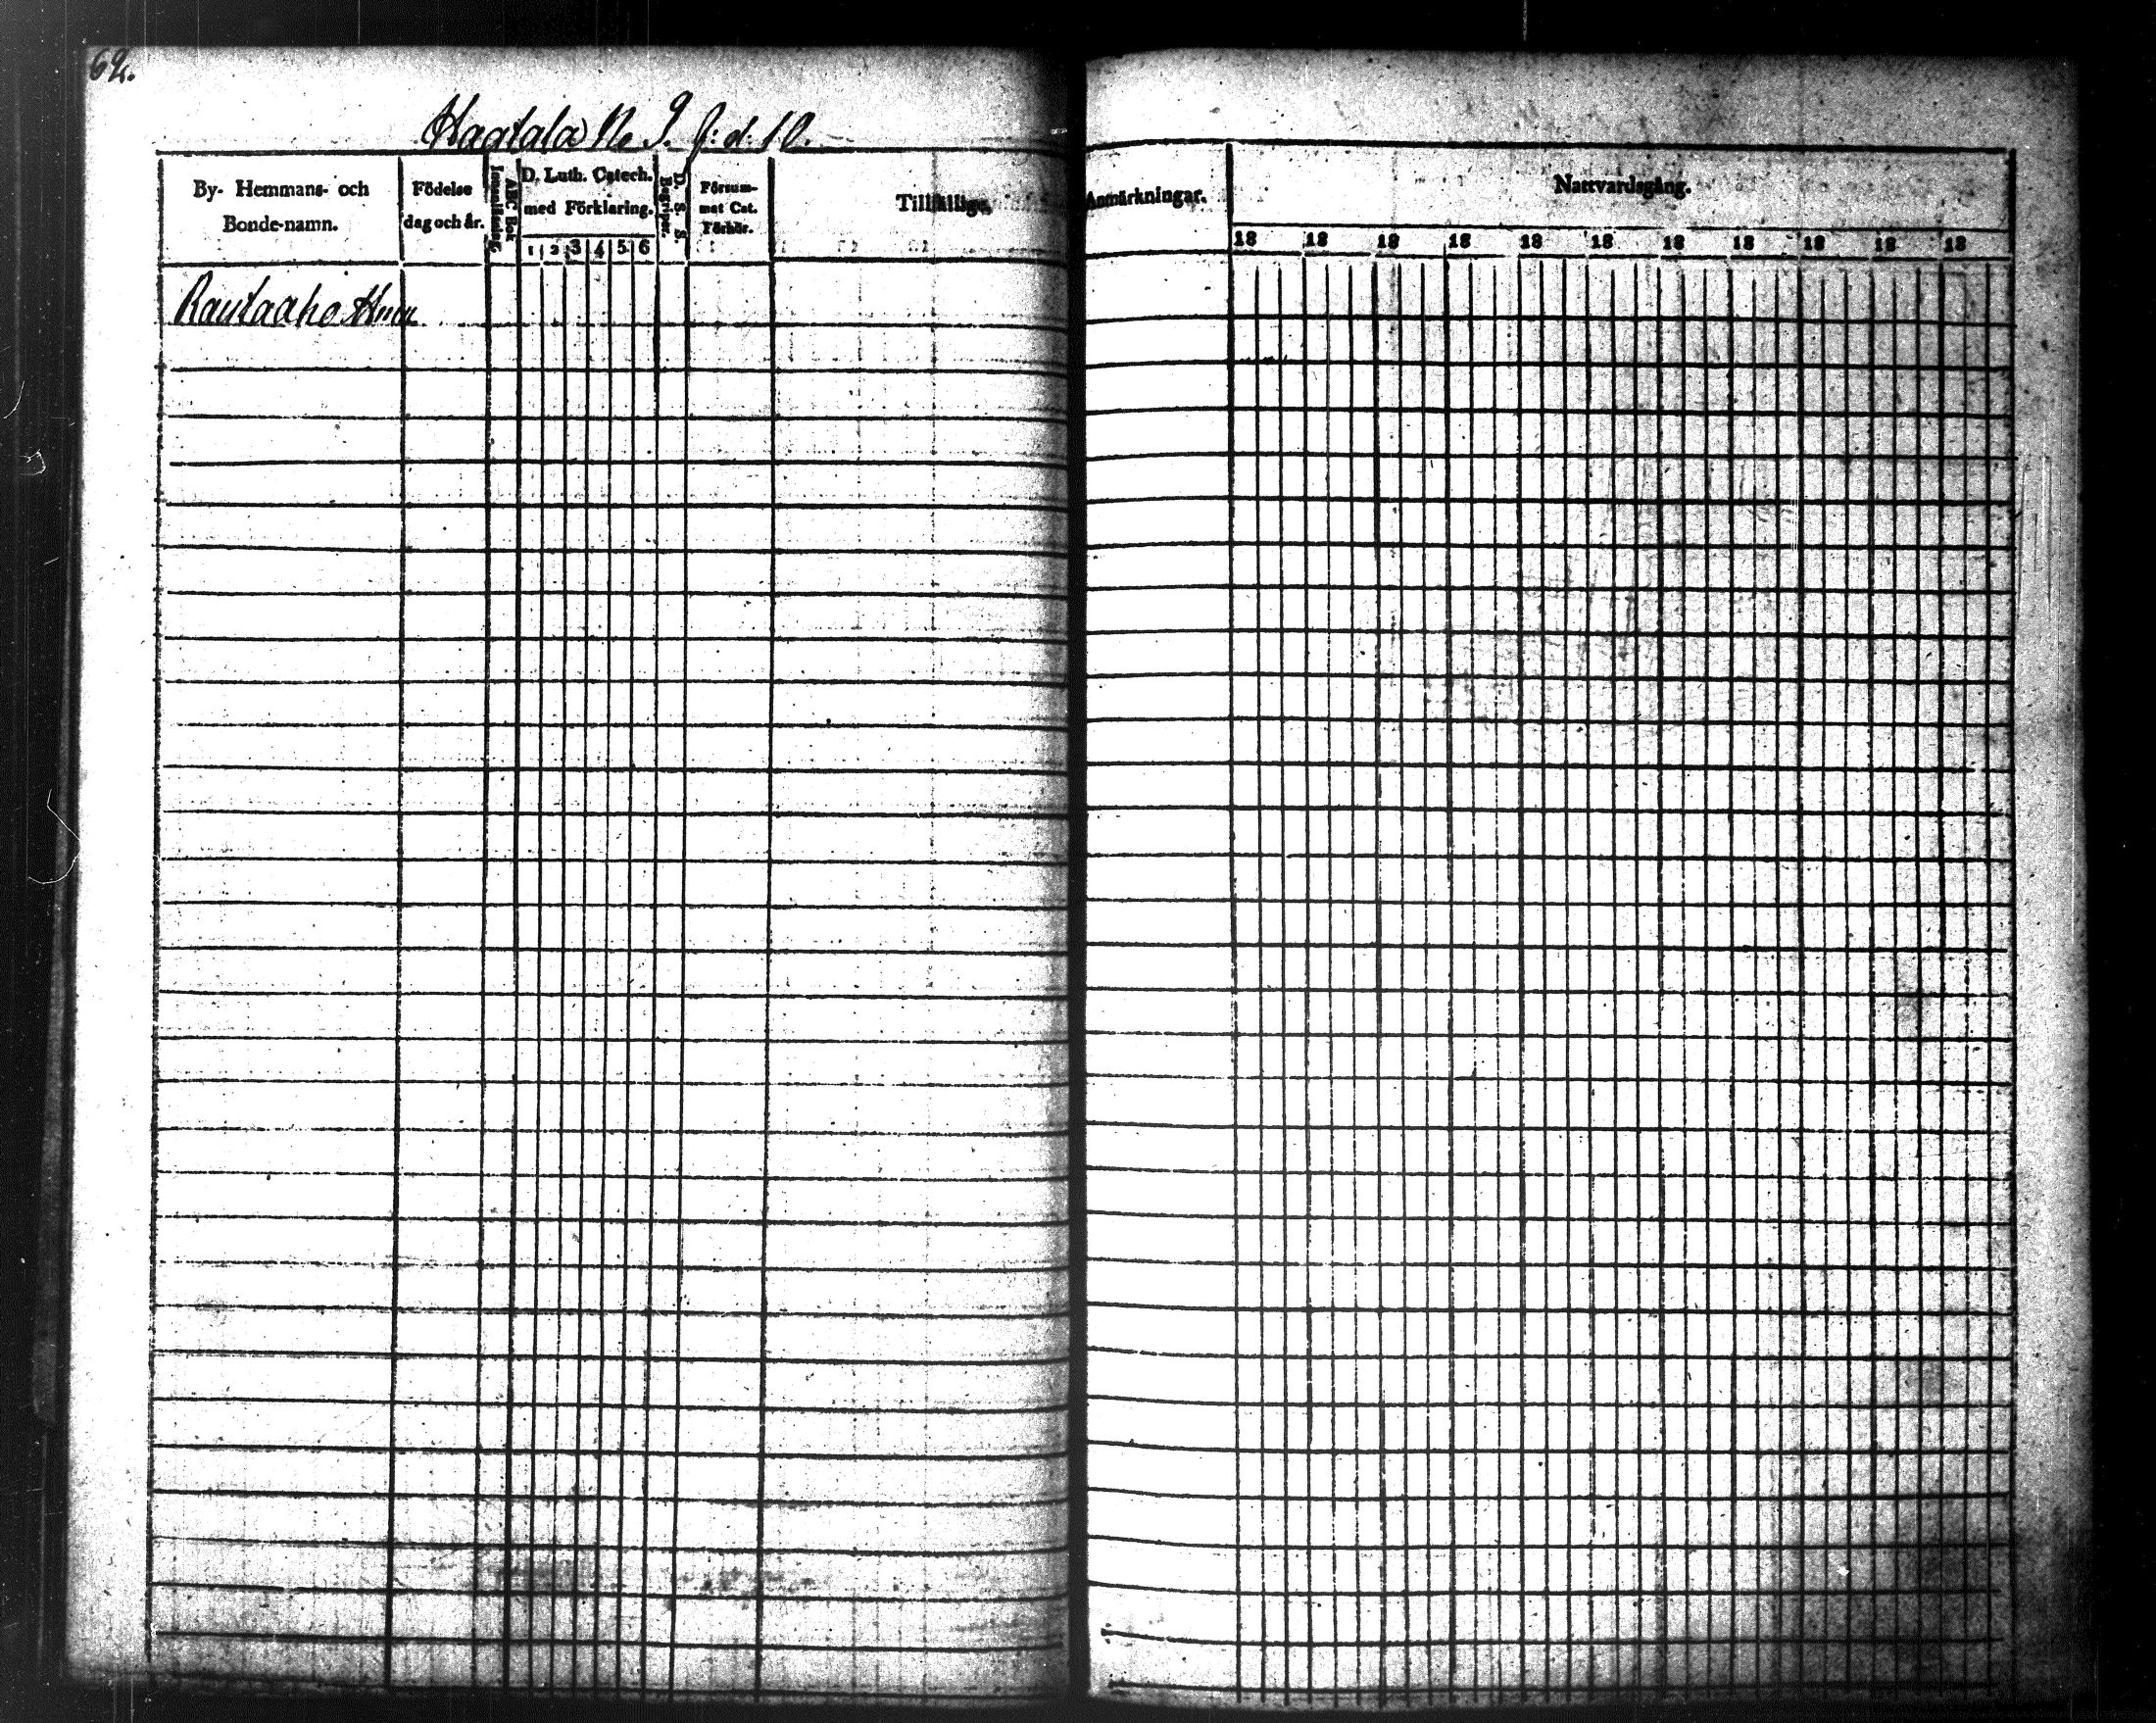 62.
Haatala No 9. f: d: 10.
By- Hemmans- och
Bonde-namn.
Födelse
dag och år.
ABC Bok
Innanläsning.
D. Luth. Catech.
med Förklaring.
1 2 3 4 5 6
D. S. S.
Begriper.
Försum-
mat Cat.
Förhör.
Tillfällige
Anmärkningar.
Nattvardsgång.
18 18 18 18 18 18 18 18 18 18 18
Rautaaho